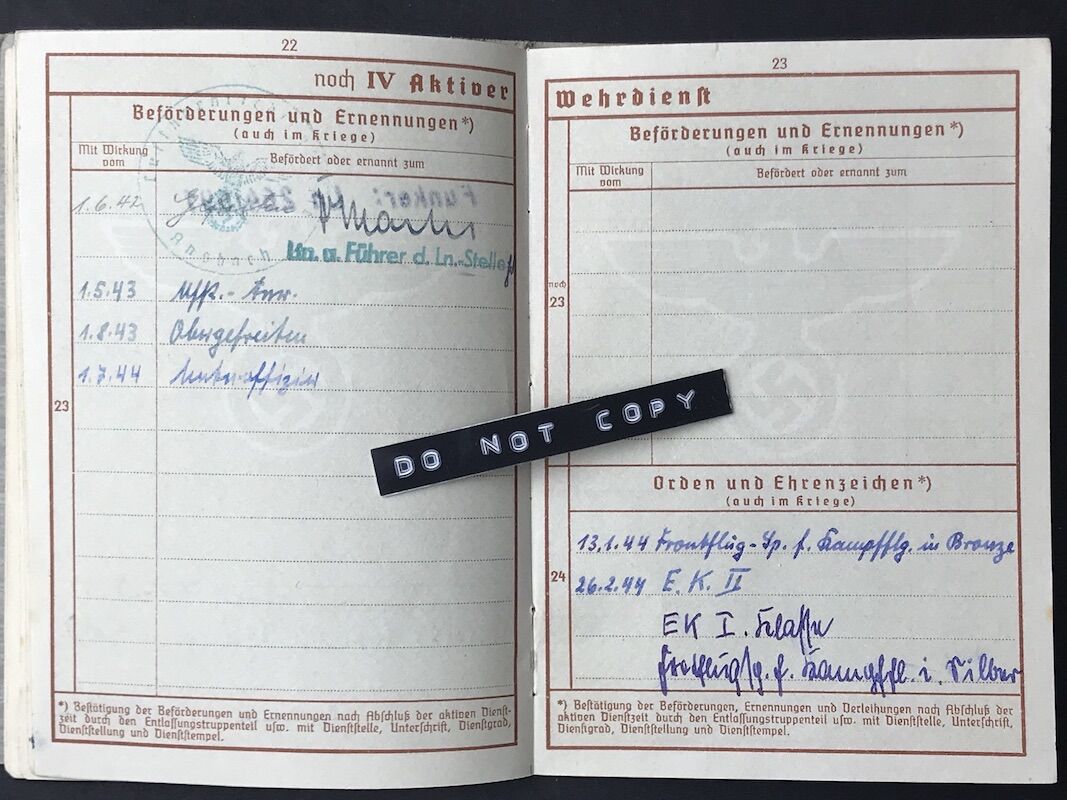 22
noch IV Aktiver
Beförderungen und Ernennungen*)
(auch im Kriege)
Mit Wirkung vom
Befördert oder ernannt zum
1.6.42
Ansbach
Ln. u. Führer d. Ln.-Stelle
1.5.43 Uffz.-Anw.
1.8.43 Obergefreiten
1.7.44 Unteroffizier
23
*) Bestätigung der Beförderungen und Ernennungen nach Abschluß der aktiven Dienst-
zeit durch den Entlassungstruppenteil usw. mit Dienststelle, Unterschrift, Dienstgrad,
Dienststellung und Dienststempel.
23
Wehrdienst
Beförderungen und Ernennungen*)
(auch im Kriege)
Mit Wirkung vom
Befördert oder ernannt zum
noch
23
DO NOT COPY
Orden und Ehrenzeichen*)
(auch im Kriege)
13.1.44 Frontflug-Sp. f. Kampfflg. in Bronze
24
26.2.44 E.K. II
EK I. Klasse
Frotflugsp. f. Kampffl. i. Silber
*) Bestätigung der Beförderungen, Ernennungen und Verleihungen nach Abschluß der
aktiven Dienstzeit durch den Entlassungstruppenteil usw. mit Dienststelle, Unterschrift,
Dienstgrad, Dienststellung und Dienststempel.